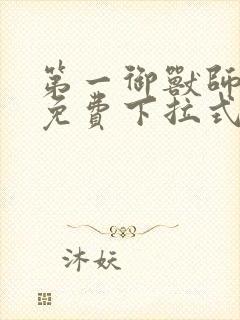 第一御獸師
免費下拉式
沐妖